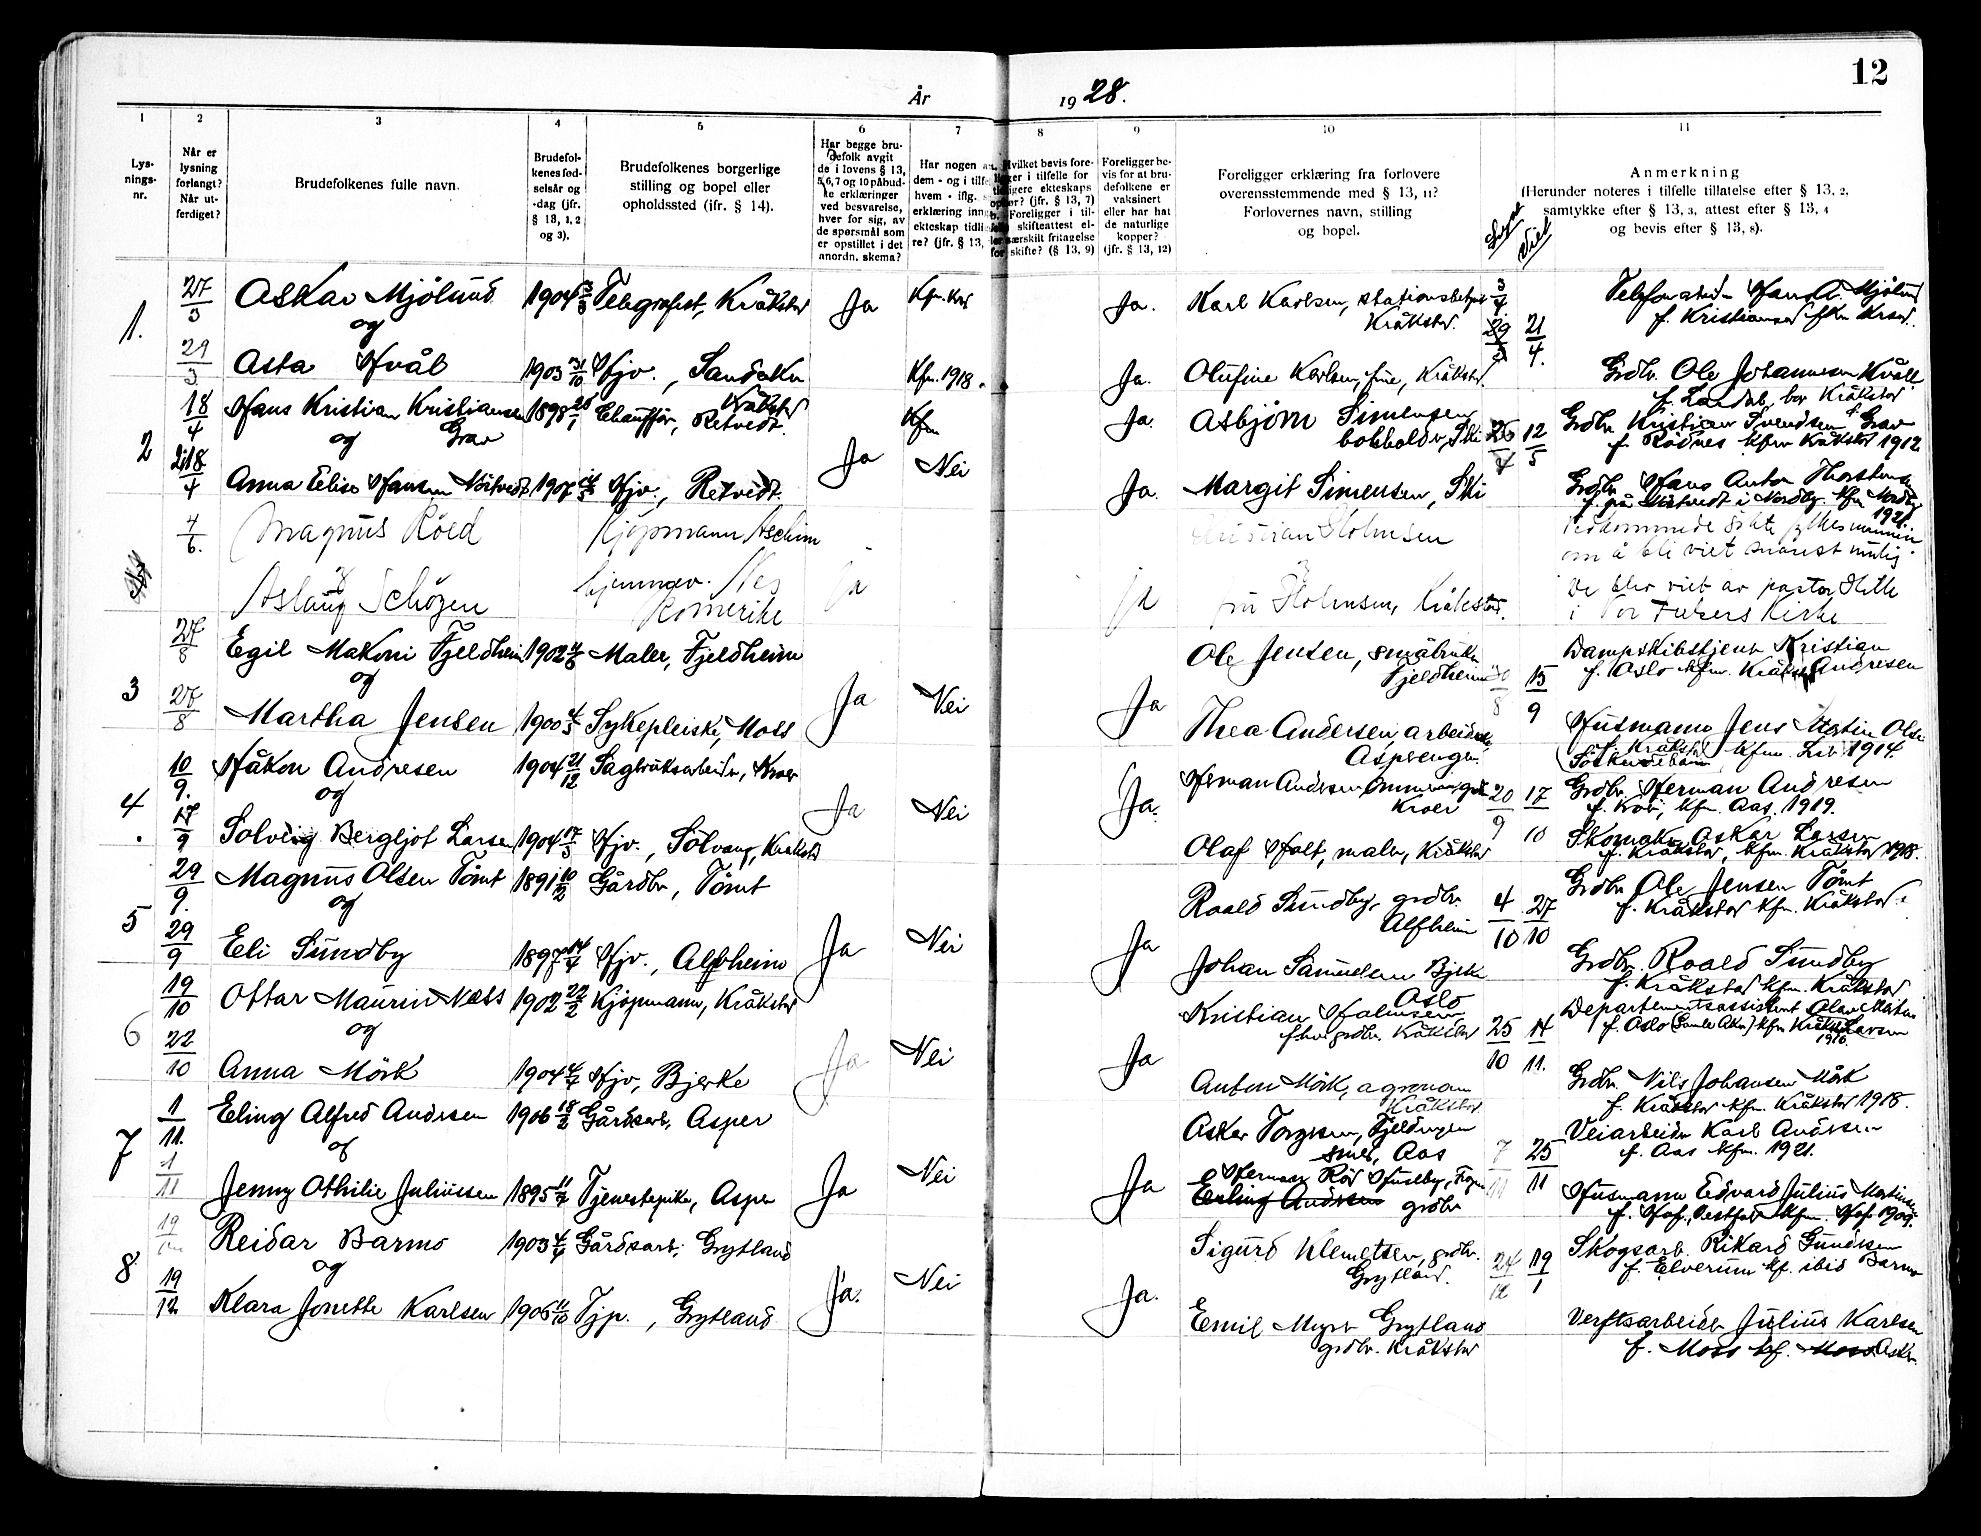 12
År 1928.
1 2 3 4 5 6 7 8 9 10 11
Lys-
nings-
nr.
Når er
lysning
forlangt?
Når ut-
ferdiget?
Brudefolkenes fulle navn.
Brudefol-
kenes fød-
selsår og
-dag (jfr.
§ 13, 1, 2
og 3).
Brudefolkenes borgerlige
stilling og bopel eller
opholdssted (ifr. § 14).
Har begge bru-
defolk avgit
de i lovens § 13,
5, 6, 7 og 10 påbud-
te erklæringer
ved besvarelse,
hver for sig, av
de spørsmål som
er opstillet i det
anordn. skema?
Har nogen av
dem - og i tilf
hvem - iflg.
erklæring inng
ekteskap tidli
re? (jfr. § 13,
Hvilket bevis fore-
ligger i tilfelle for
tidligere ekteskaps
ophør? (jfr. § 13, 7)
Foreligger i til-
skifteattest el-
særskilt fritagelse
for skifte? (§ 13, 9)
Foreligger be-
vis for at bru-
defolkene er
vaksinert
eller har hat
de naturlige
kopper?
(jfr. § 13, 12)
Foreligger erklæring fra forlovere
overensstemmende med § 13, 11?
Forlovernes navn, stilling
og bopel.
Lyst
Viet
Anmerkning
(Herunder noteres i tilfelle tillatelse efter § 13, 2,
samtykke efter § 13, 3, attest efter § 13, 4
og bevis efter § 13, 8).
1. 27/3 Askar Mjölund 1904 Telegrafist, Kråkstad Ja Ja. Karl Karlsen, stationsbetjent
Kråkstad.
og
21/4.
f. Kristiansund
29/3 Asta Hvål 1903 31/10 Hjv., Kfm. 1918. Ja. Olufine Karlsen, frue, Kråkstad. Grdbr. Ole Johannesen Hvål
bor Kråkstad
2 18/4 Hans Kristian Kristiansen
Grav 1898 Chauffør, Retvedt. Kråkstad Kfm Ja. Asbjörn Simensen
bokholder, Ski 26/4 12/5 Grdbr. Kristian Svendsen Grav
f. Rödnes kfm Kråkstad 1912
og
Ja
18/4 Anna Elise Hansen Nötvedt 1907 Hjv., Retvedt. Nei Ja. Margit Simensen, Ski Grdbr. Hans Anton Thorstensen
i Nordby kfm Nordby
1921.
4/6. Magnus Röed Kjöpmann Askim Kristian Holmsen
om å bli viet snarest mulig
Aslaug Schözen hjemmev. Nes
Romerike ja ja fru Holmsen, Kråkstad. De blev viet av pastor Hille
i Vor Frelsers Kirke
3 27/8 Egil Makoni Fjeldheim 1902 Maler, Fjeldheim Ja Nei Ja Ole Jensen, småbruker
Fjeldheim 15/9 Dampskibstjener Kristian
Andresen
f. Oslo kfm. Kråkstad
og
27/8 Martha Jensen 1900 Sykepleiske, Moss Thea Andersen, arbeiderske
Aspengen. Husmann Jens Martin Olsen
f. Kråkstad kfm. 1914.
4 10/9. Håkon Andresen 1904 21/12 Sagbruksarbeider, Kroer Ja Nei Ja. Herman Andresen
Kroer 20/9 17/10 Grdbr. Herman Andresen
kfm. Aas. 1919.
og
17/9 Solveig Bergljot Larsen 1904 17/3 Hjv., Solvang, Kråkstad Olaf Holt, maler, Kråkstad Skomaker Oskar Larsen
f. Kråkstad, kfm. Kråkstad 1918.
5 29/9. Magnus Olsen Tömt 1891 10/12 Gårdbr., Tömt Ja Nei Ja Roald Sundby, grdbr.
Alfheim 4/10 27/10 Grdbr. Ole Jensen Tömt
f. Kråkstad kfm. Kråkstad.
og
29/9 Eli Sundby 1897 14/4 Hjv., Alfheim Johan Samuelsen Bjerke
Oslo Grdbr. Roald Sundby
f. Kråkstad kfm. Kråkstad
6 19/10 Ottar Maurin Næss 1902 22/2 Kjöpmann, Kråkstad Ja Nei Ja Kristian Holmsen
fhv. grdbr. Kråkstad 25/10 14/11. Departementsassistent
f. Oslo
og
22/10 Anna Mörk 1904 4/7 Hjv, Bjerke Anton Mörk, agronom
Kråkstad Grdbr. Nils Johansen Mörk
f. Kråkstad kfm. Kråkstad 1918.
7 1/11. Erling Alfred Andersen 1906 18/2 Gårdsarb., Asper Ja Nei Ja Asker Torgersen, Fjeldvegen
smed, Aas 7/11 25/11 Veiarbeider Karl Andersen
f. Aas kfm. 1921.
og
1/11 Jenny Othilie Juliussen 1895 11/7 Tjenestepike, Asper Herman Röd
Erling Andersen grdbr Husmann Edvard Julius Martinsen
f. Hof, Vestfold kfm. Hof 1909.
8 19/ Reidar Barmo 1903 4/4 Gårdsarb. Grytland Ja. Nei Ja. Sigurd Klemetsen, grdbr.
Grytland. 24/12 19/1 Skogsarb. Rikard Gundersen
Barmo
f. Elverum kf. ibid
og
19/12 Klara Jonette Karlsen 1906 11/10 Tjp., Grytland Emil Myrer Grytland
grdbr. Kråkstad Verftsarbeider Julius Karlsen
f. Moss kf. Moss Asker